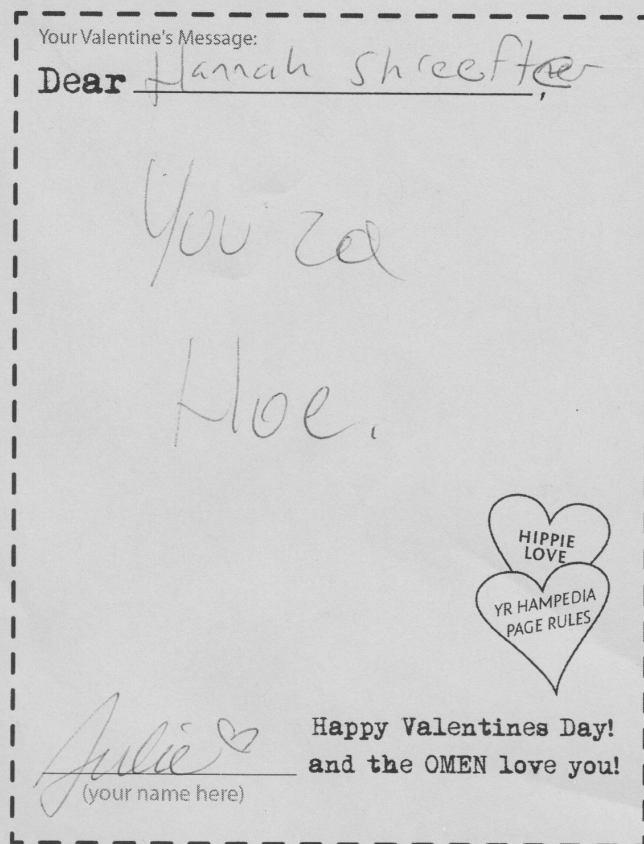 Your Valentine's Message:
Dear Hannah Shreefter,
You'ra
Hoe.
HIPPIE
LOVE
YR HAMPEDIA
PAGE RULES
Julie ♡
Happy Valentines Day!
and the OMEN love you!
(your name here)